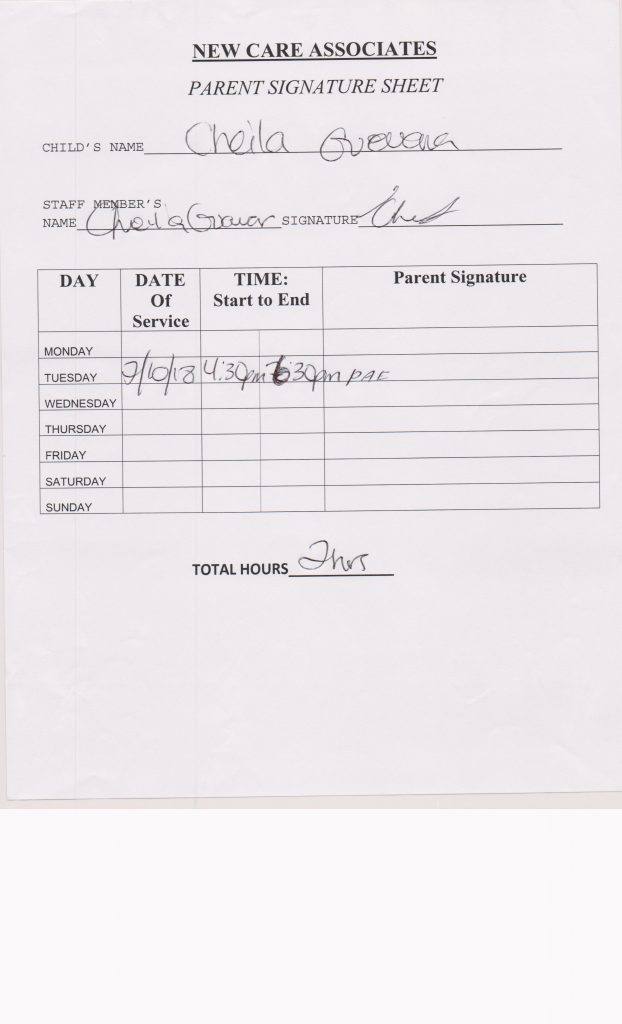 NEW CARE ASSOCIATES
PARENT SIGNATURE SHEET
CHILD'S NAME Cheila Guevara
STAFF MEMBER'S
NAME Cheila SIGNATURE
DAY DATE Of Service TIME: Start to End Parent Signature
MONDAY
TUESDAY 7/10/18 4:30pm 6:30pm
WEDNESDAY
THURSDAY
FRIDAY
SATURDAY
SUNDAY
TOTAL HOURS 2hrs